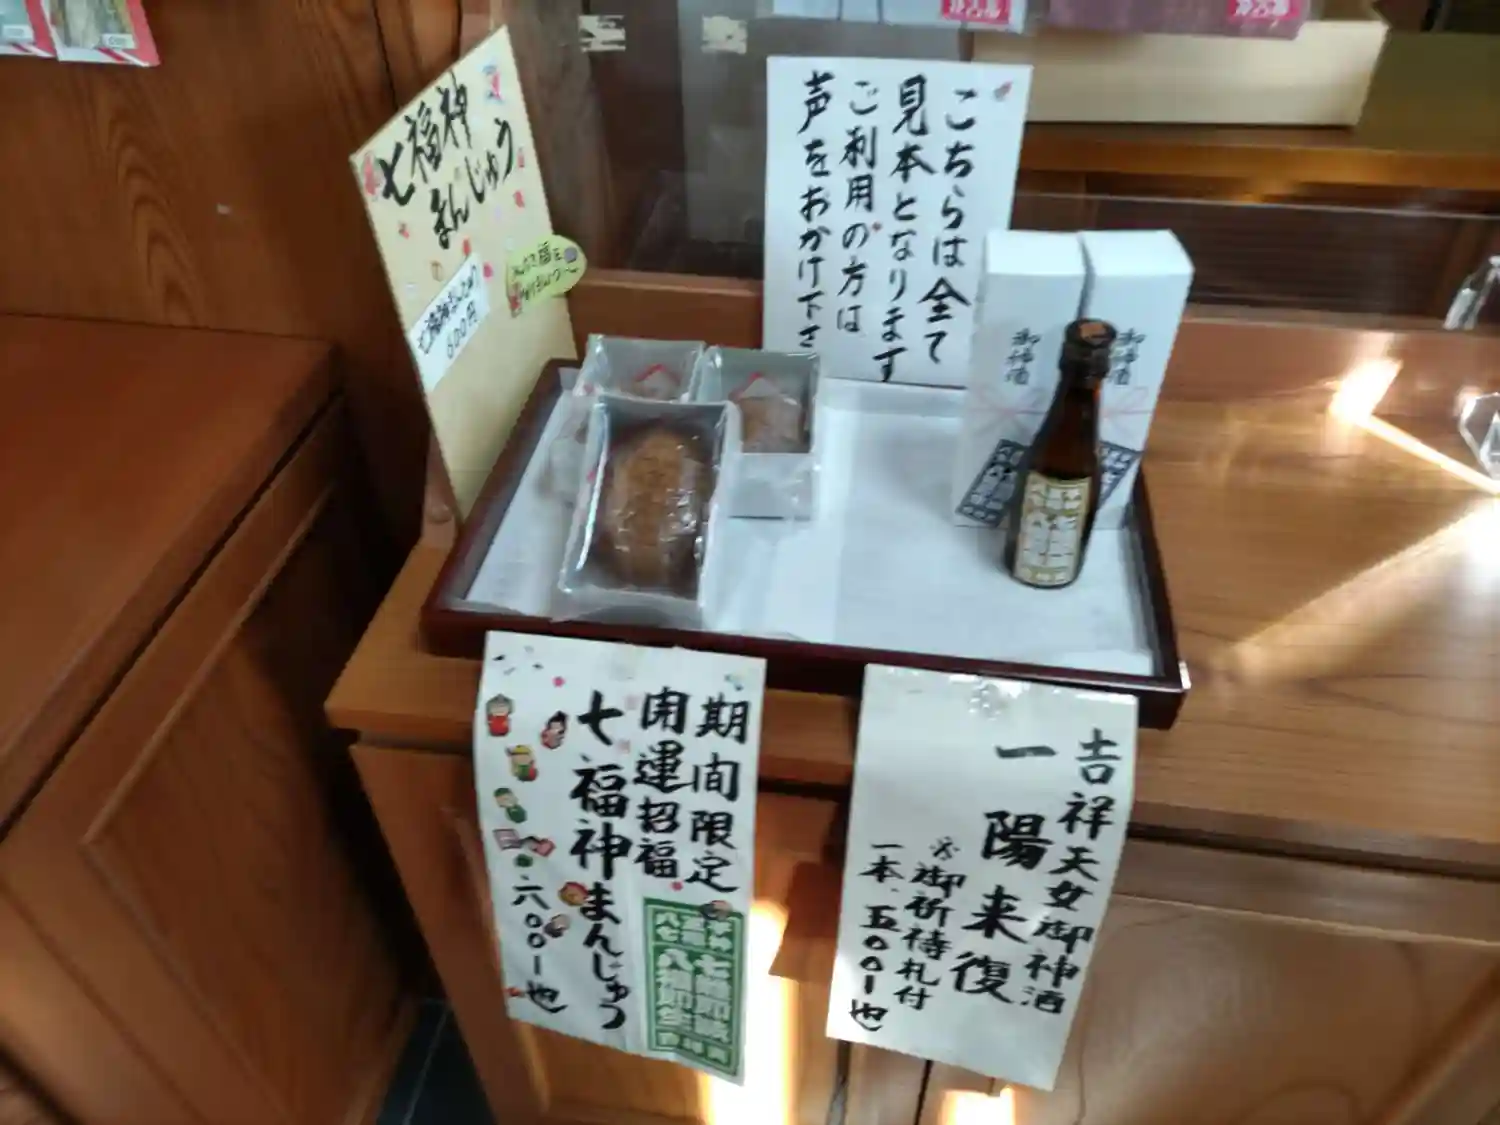 七福神
まんじゅう
七福神まんじゅう
600円
こちらは全て
見本となります
ご利用の方は
声をおかけ下さ
御神酒
御神酒
期間限定
開運招福
七福神まんじゅう
六〇〇ー也
吉祥天女御神酒
一陽来復
※御祈祷札付
一本、五〇〇ー也